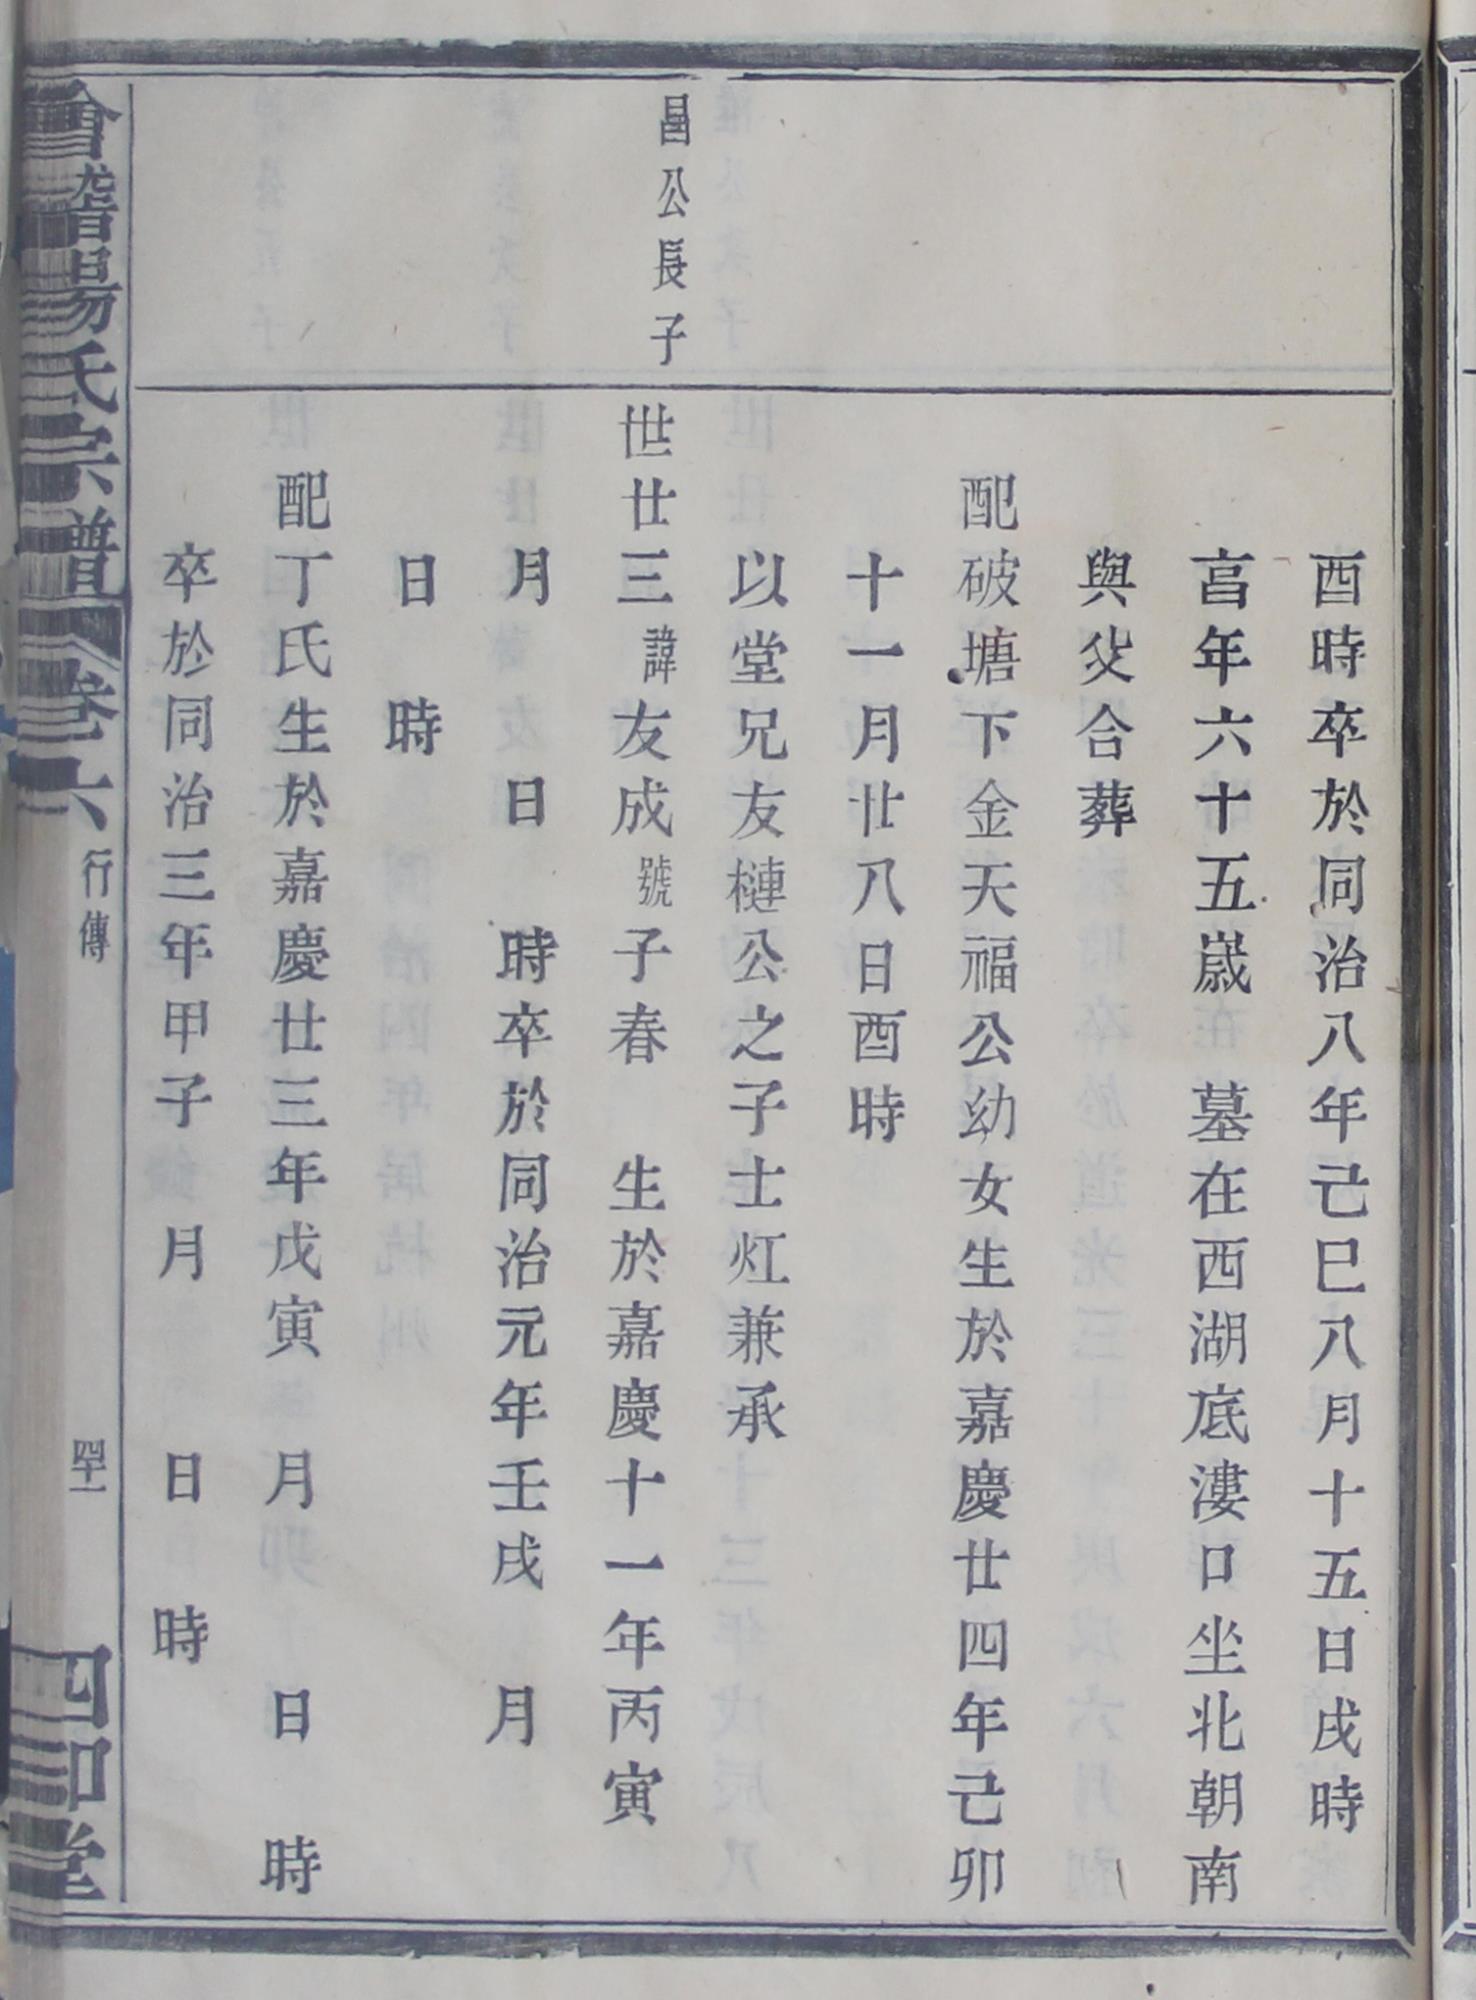 酉時卒於同治八年己巳八月十五日戌時
亯年六十五嵗　墓在西湖底漊口坐北朝南
與父合葬
配破塘下金天福公幼女生於嘉慶廿四年己卯
十一月廿八日酉時
以堂兄友槤公之子士灴兼承
昌公長子
世廿三諱友成號子春　生於嘉慶十一年丙寅
月　　日　時卒於同治元年壬戌　月
日　時
配丁氏生於嘉慶廿三年戊寅　月　　日　時
卒於同治三年甲子　月　　日　時
會稽昜氏宗譜　卷六　行傳　四十一　四印堂